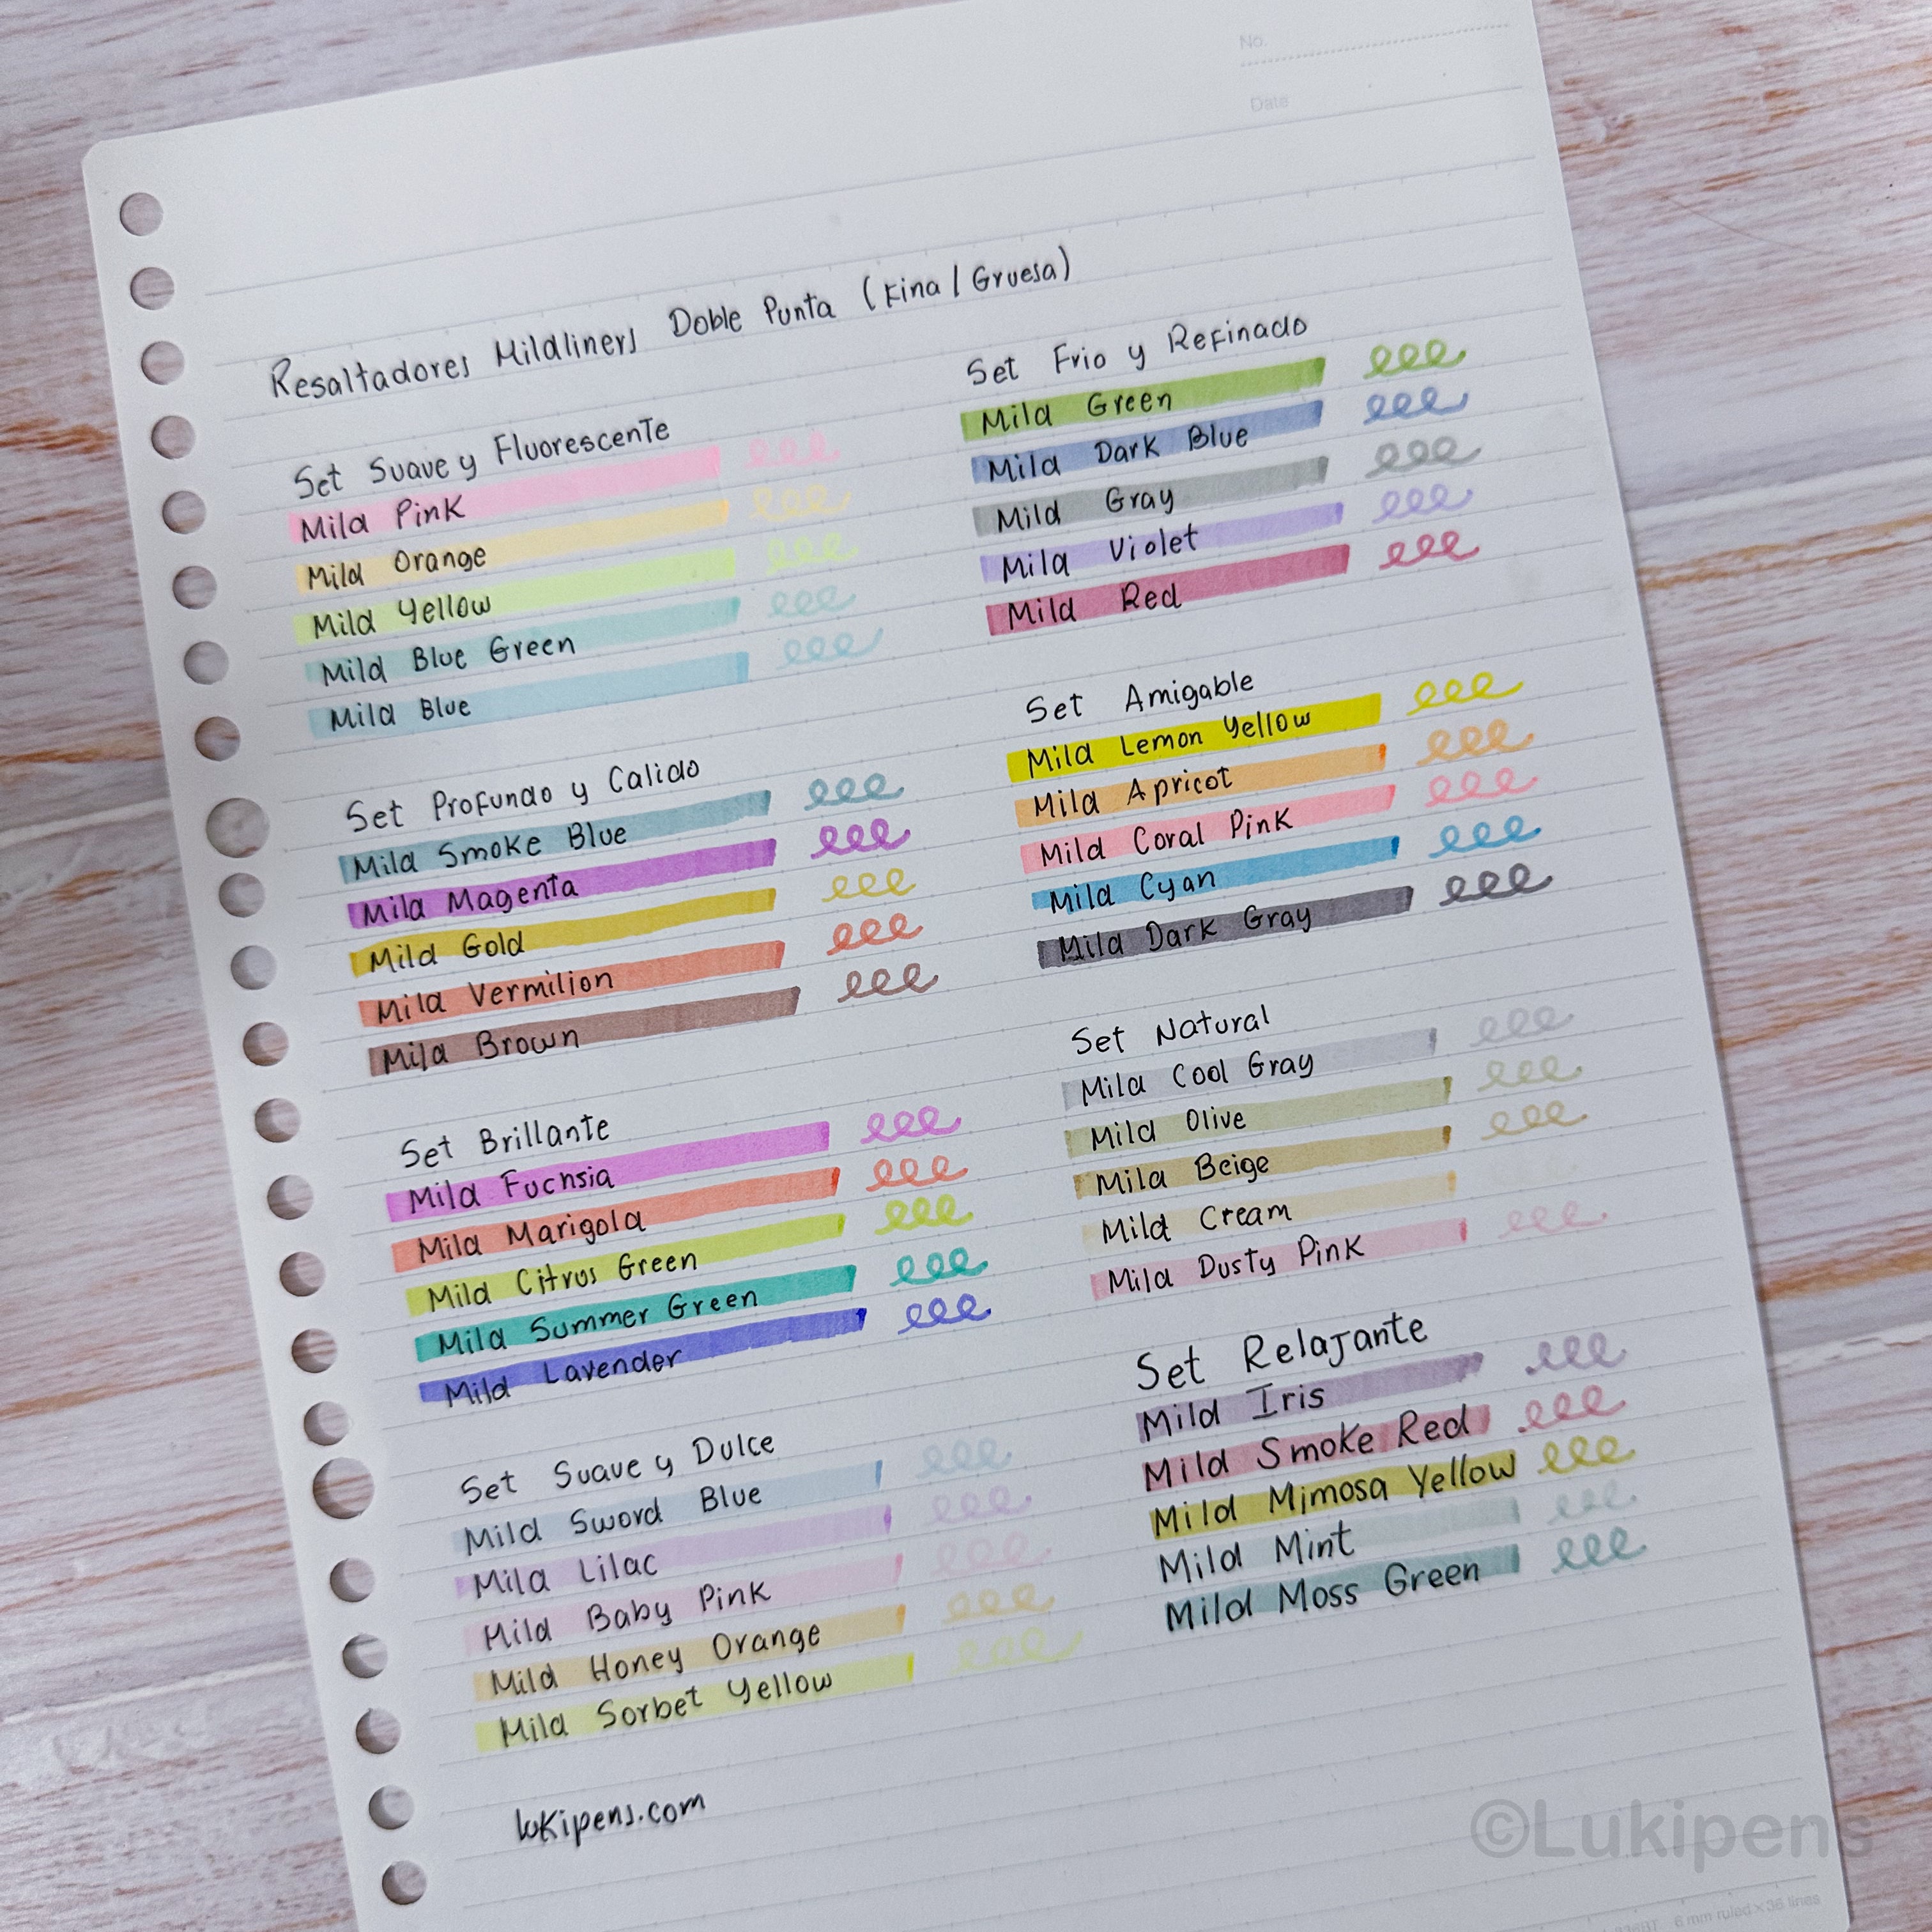 No.
Date
Resaltadores Mildliners Doble Punta (Fina / Gruesa)
Set Suave y Fluorescente
Mild Pink
Mild Orange
Mild Yellow
Mild Blue Green
Mild Blue
Set Profundo y Calido
Mild Smoke Blue
Mild Magenta
Mild Gold
Mild Vermilion
Mild Brown
Set Brillante
Mild Fuchsia
Mild Marigold
Mild Citrus Green
Mild Summer Green
Mild Lavender
Set Suave y Dulce
Mild Sword Blue
Mild Lilac
Mild Baby Pink
Mild Honey Orange
Mild Sorbet Yellow
lukipens.com
Set Frio y Refinado
Mild Green
Mild Dark Blue
Mild Gray
Mild Violet
Mild Red
Set Amigable
Mild Lemon Yellow
Mild Apricot
Mild Coral Pink
Mild Cyan
Mild Dark Gray
Set Natural
Mild Cool Gray
Mild Olive
Mild Beige
Mild Cream
Mild Dusty Pink
Set Relajante
Mild Iris
Mild Smoke Red
Mild Mimosa Yellow
Mild Mint
Mild Moss Green
©Lukipens
6 mm ruled × 36 lines